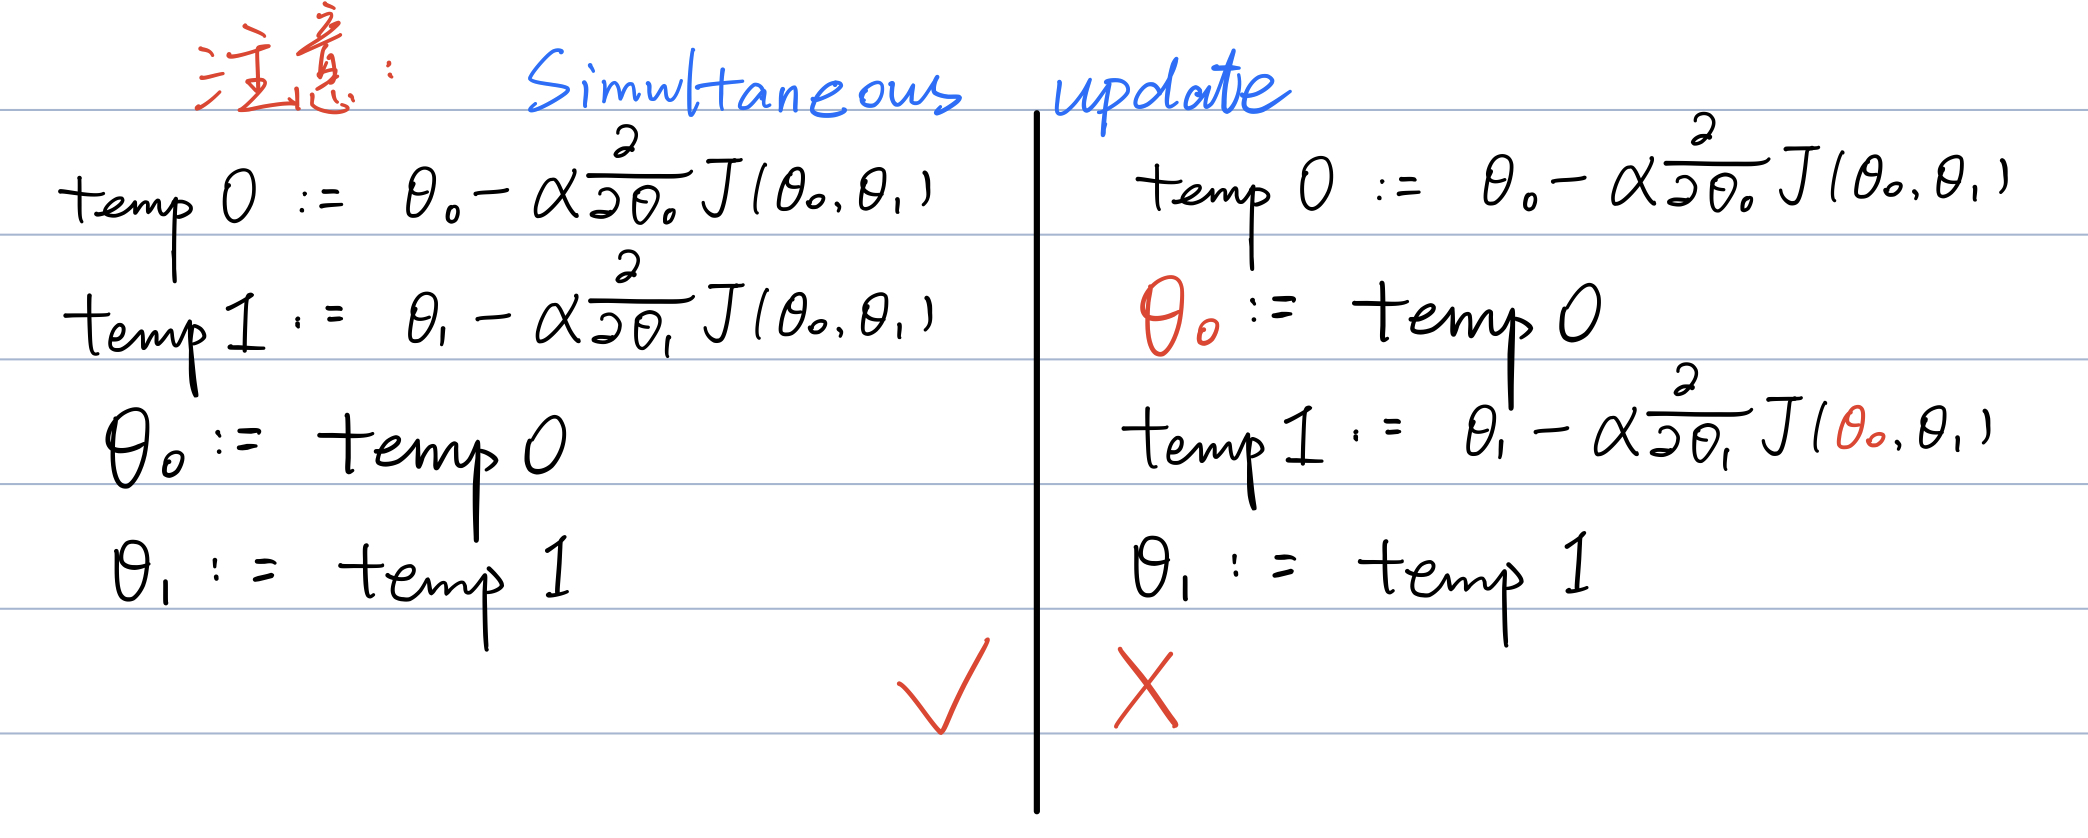 注意: Simultaneous update
temp 0 := θ₀ - α ∂/∂θ₀ J(θ₀, θ₁)
temp 1 := θ₁ - α ∂/∂θ₁ J(θ₀, θ₁)
θ₀ := temp 0
θ₁ := temp 1
✓
temp 0 := θ₀ - α ∂/∂θ₀ J(θ₀, θ₁)
θ₀ := temp 0
temp 1 := θ₁ - α ∂/∂θ₁ J(θ₀, θ₁)
θ₁ := temp 1
X